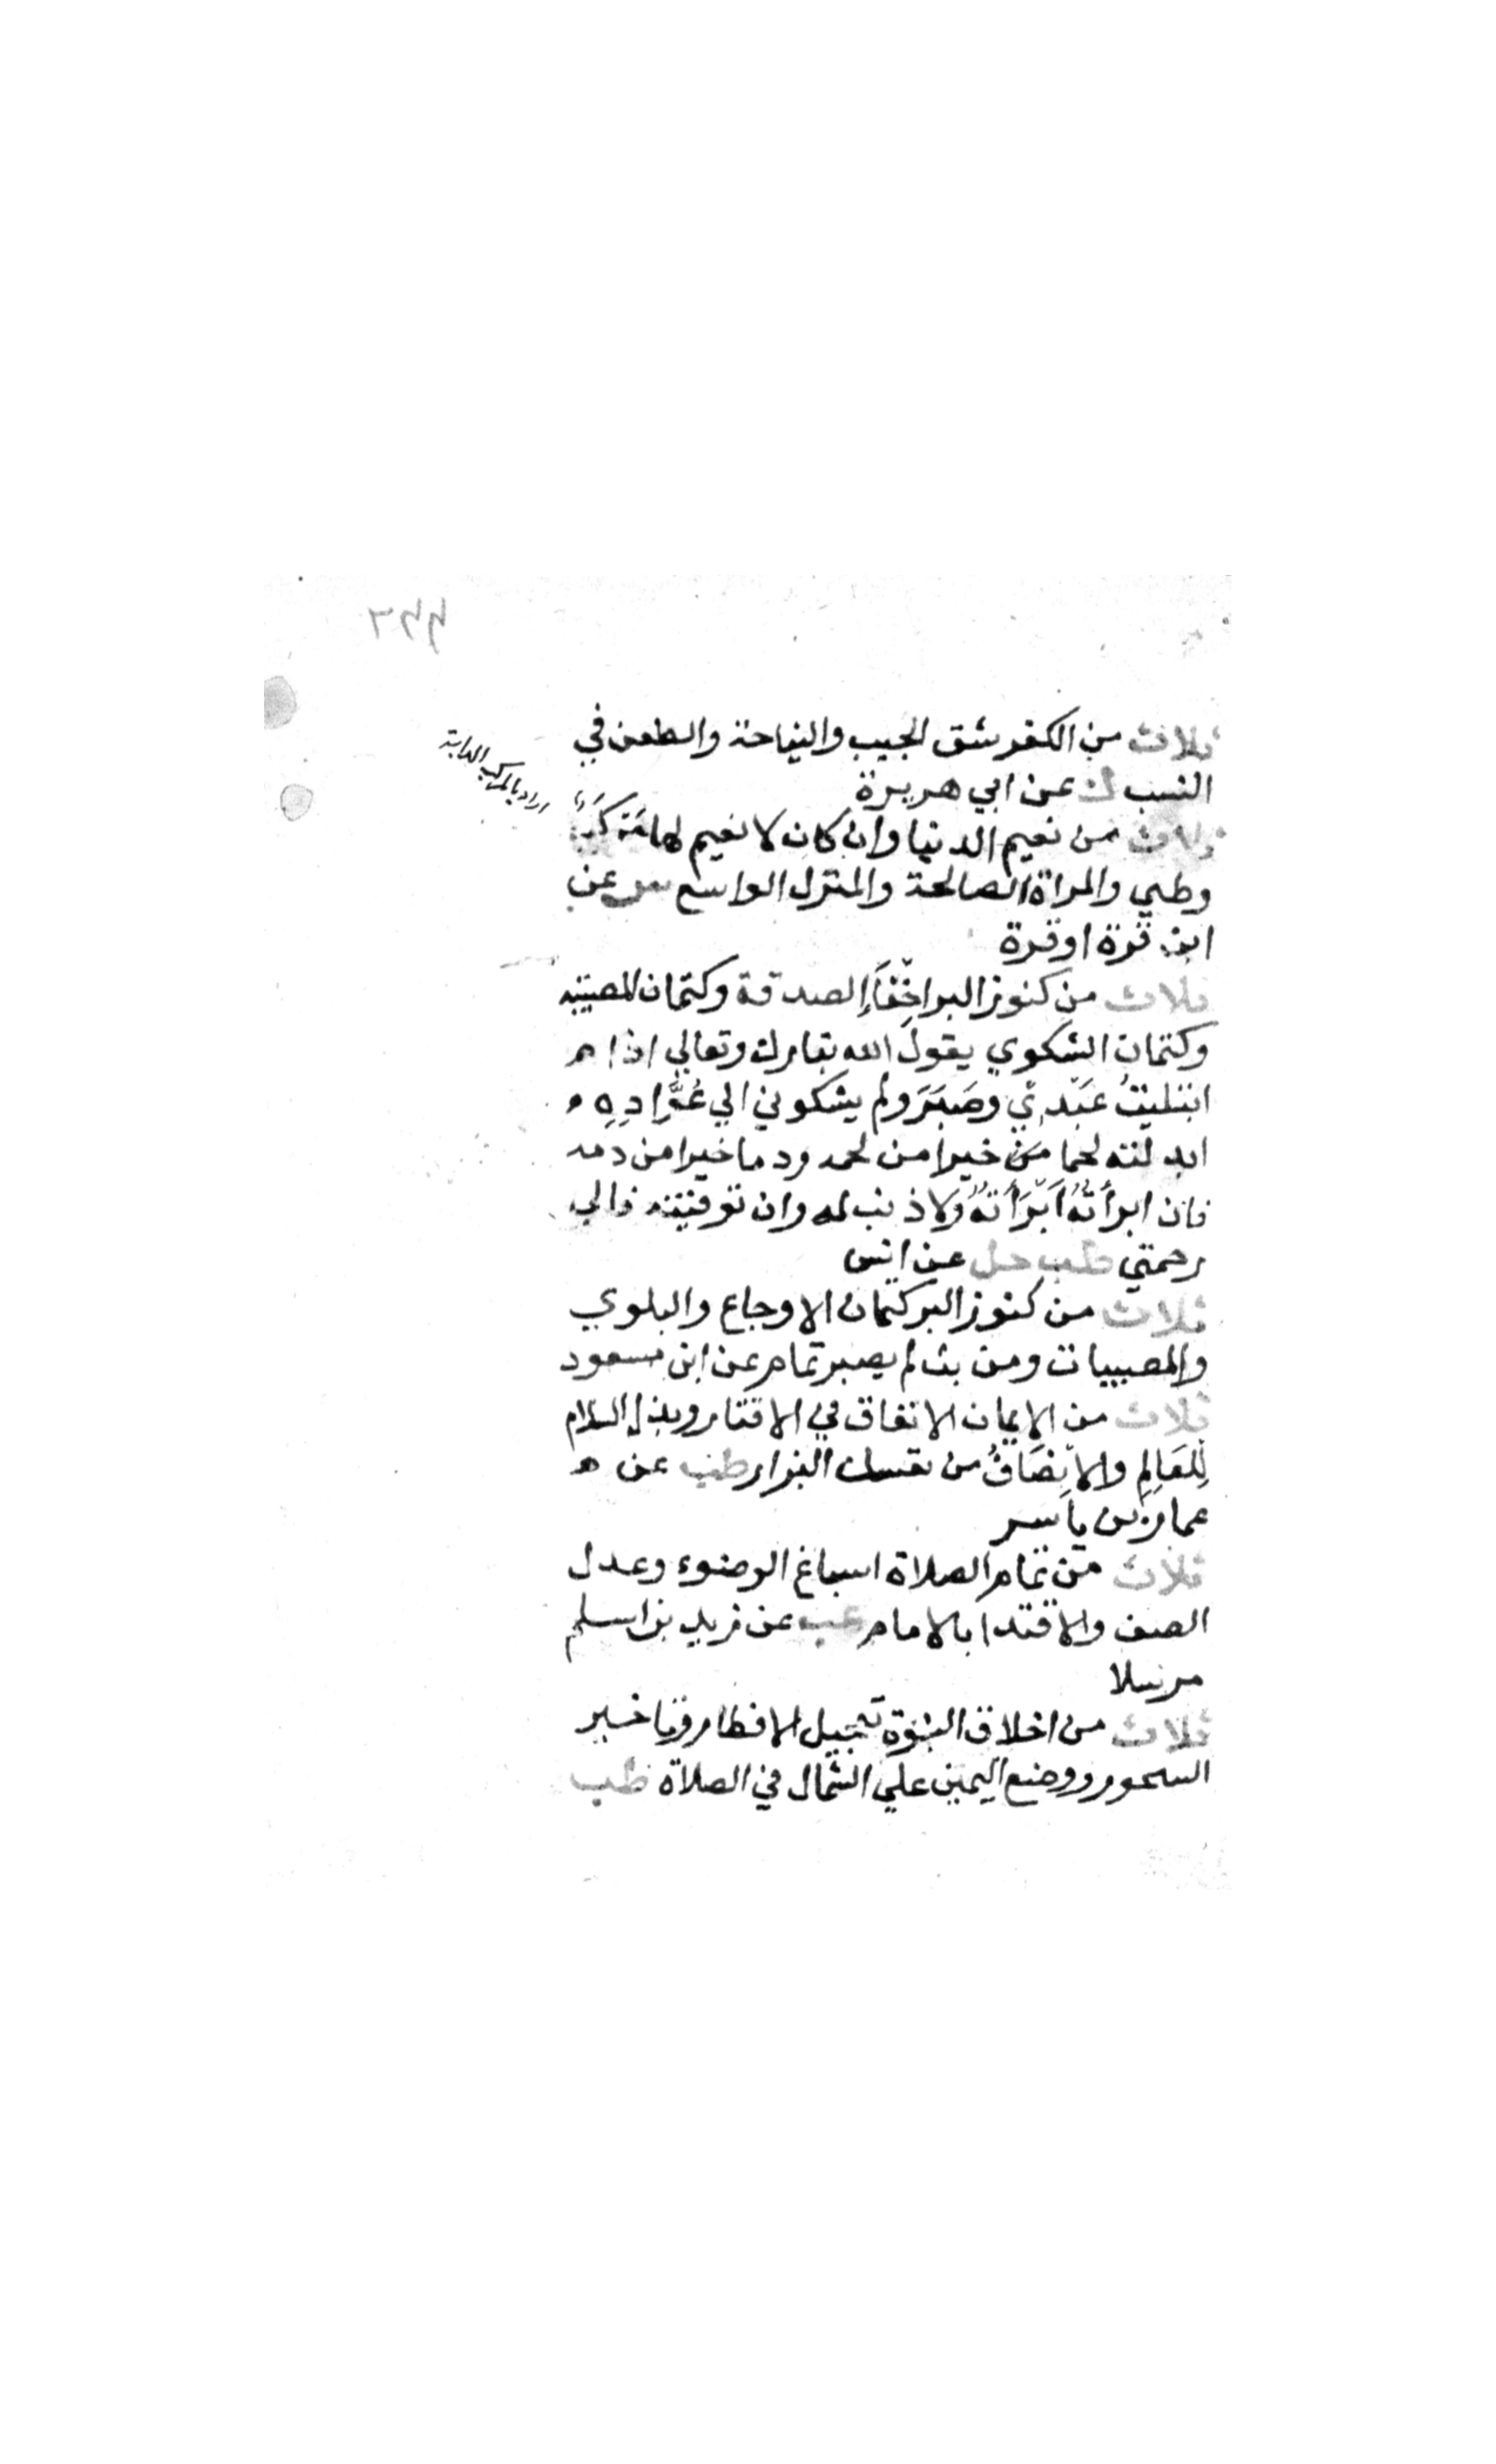 ثلاث من الكفر شق الجيب والنياحة والطعن في
النسب ك عن ابي هريرة
اراد بالمركب الدابة
ثلاث من نعيم الدنيا وان كان لا نعيم لها مركب
وطي والمراة الصالحة والمنزل الواسع عن
ابن قرة او قرة
ثلاث من كنوز البر اخفاء الصدقة وكتمان المصيبة
وكتمان الشكوي يقول الله تبارك وتعالي اذا
ابتليتُ عَبْدِي وصَبَرَ ولم يشكوني الي عُوَّادِهِ
ابدلته لحما خيرا من لحمه ودما خيرا من دمه
فان ابرأتُهُ أَبْرَأْتُهُ وَلا ذنب له وان توفيته فالي
رحمتي طب حل عن انس
ثلاث من كنوز البر كتمان الاوجاع والبلوي
والمصيبات ومن بث لم يصبر تمام عن ابن مسعود
ثلاث من الايمان الانفاق في الاقتار وبذل السلام
لِلعَالِمِ والاِنْصَافُ من نفسك البزار طب عن
عمار بن ياسر
ثلاث من تمام الصلاة اسباغ الوضوء وعدل
الصف والاقتدا بالامام عب عن زيد بن اسلم
مرسلا
ثلاث من اخلاق النبوة تعجيل الافطار وتاخير
السحور ووضع اليمين علي الشمال في الصلاة طب